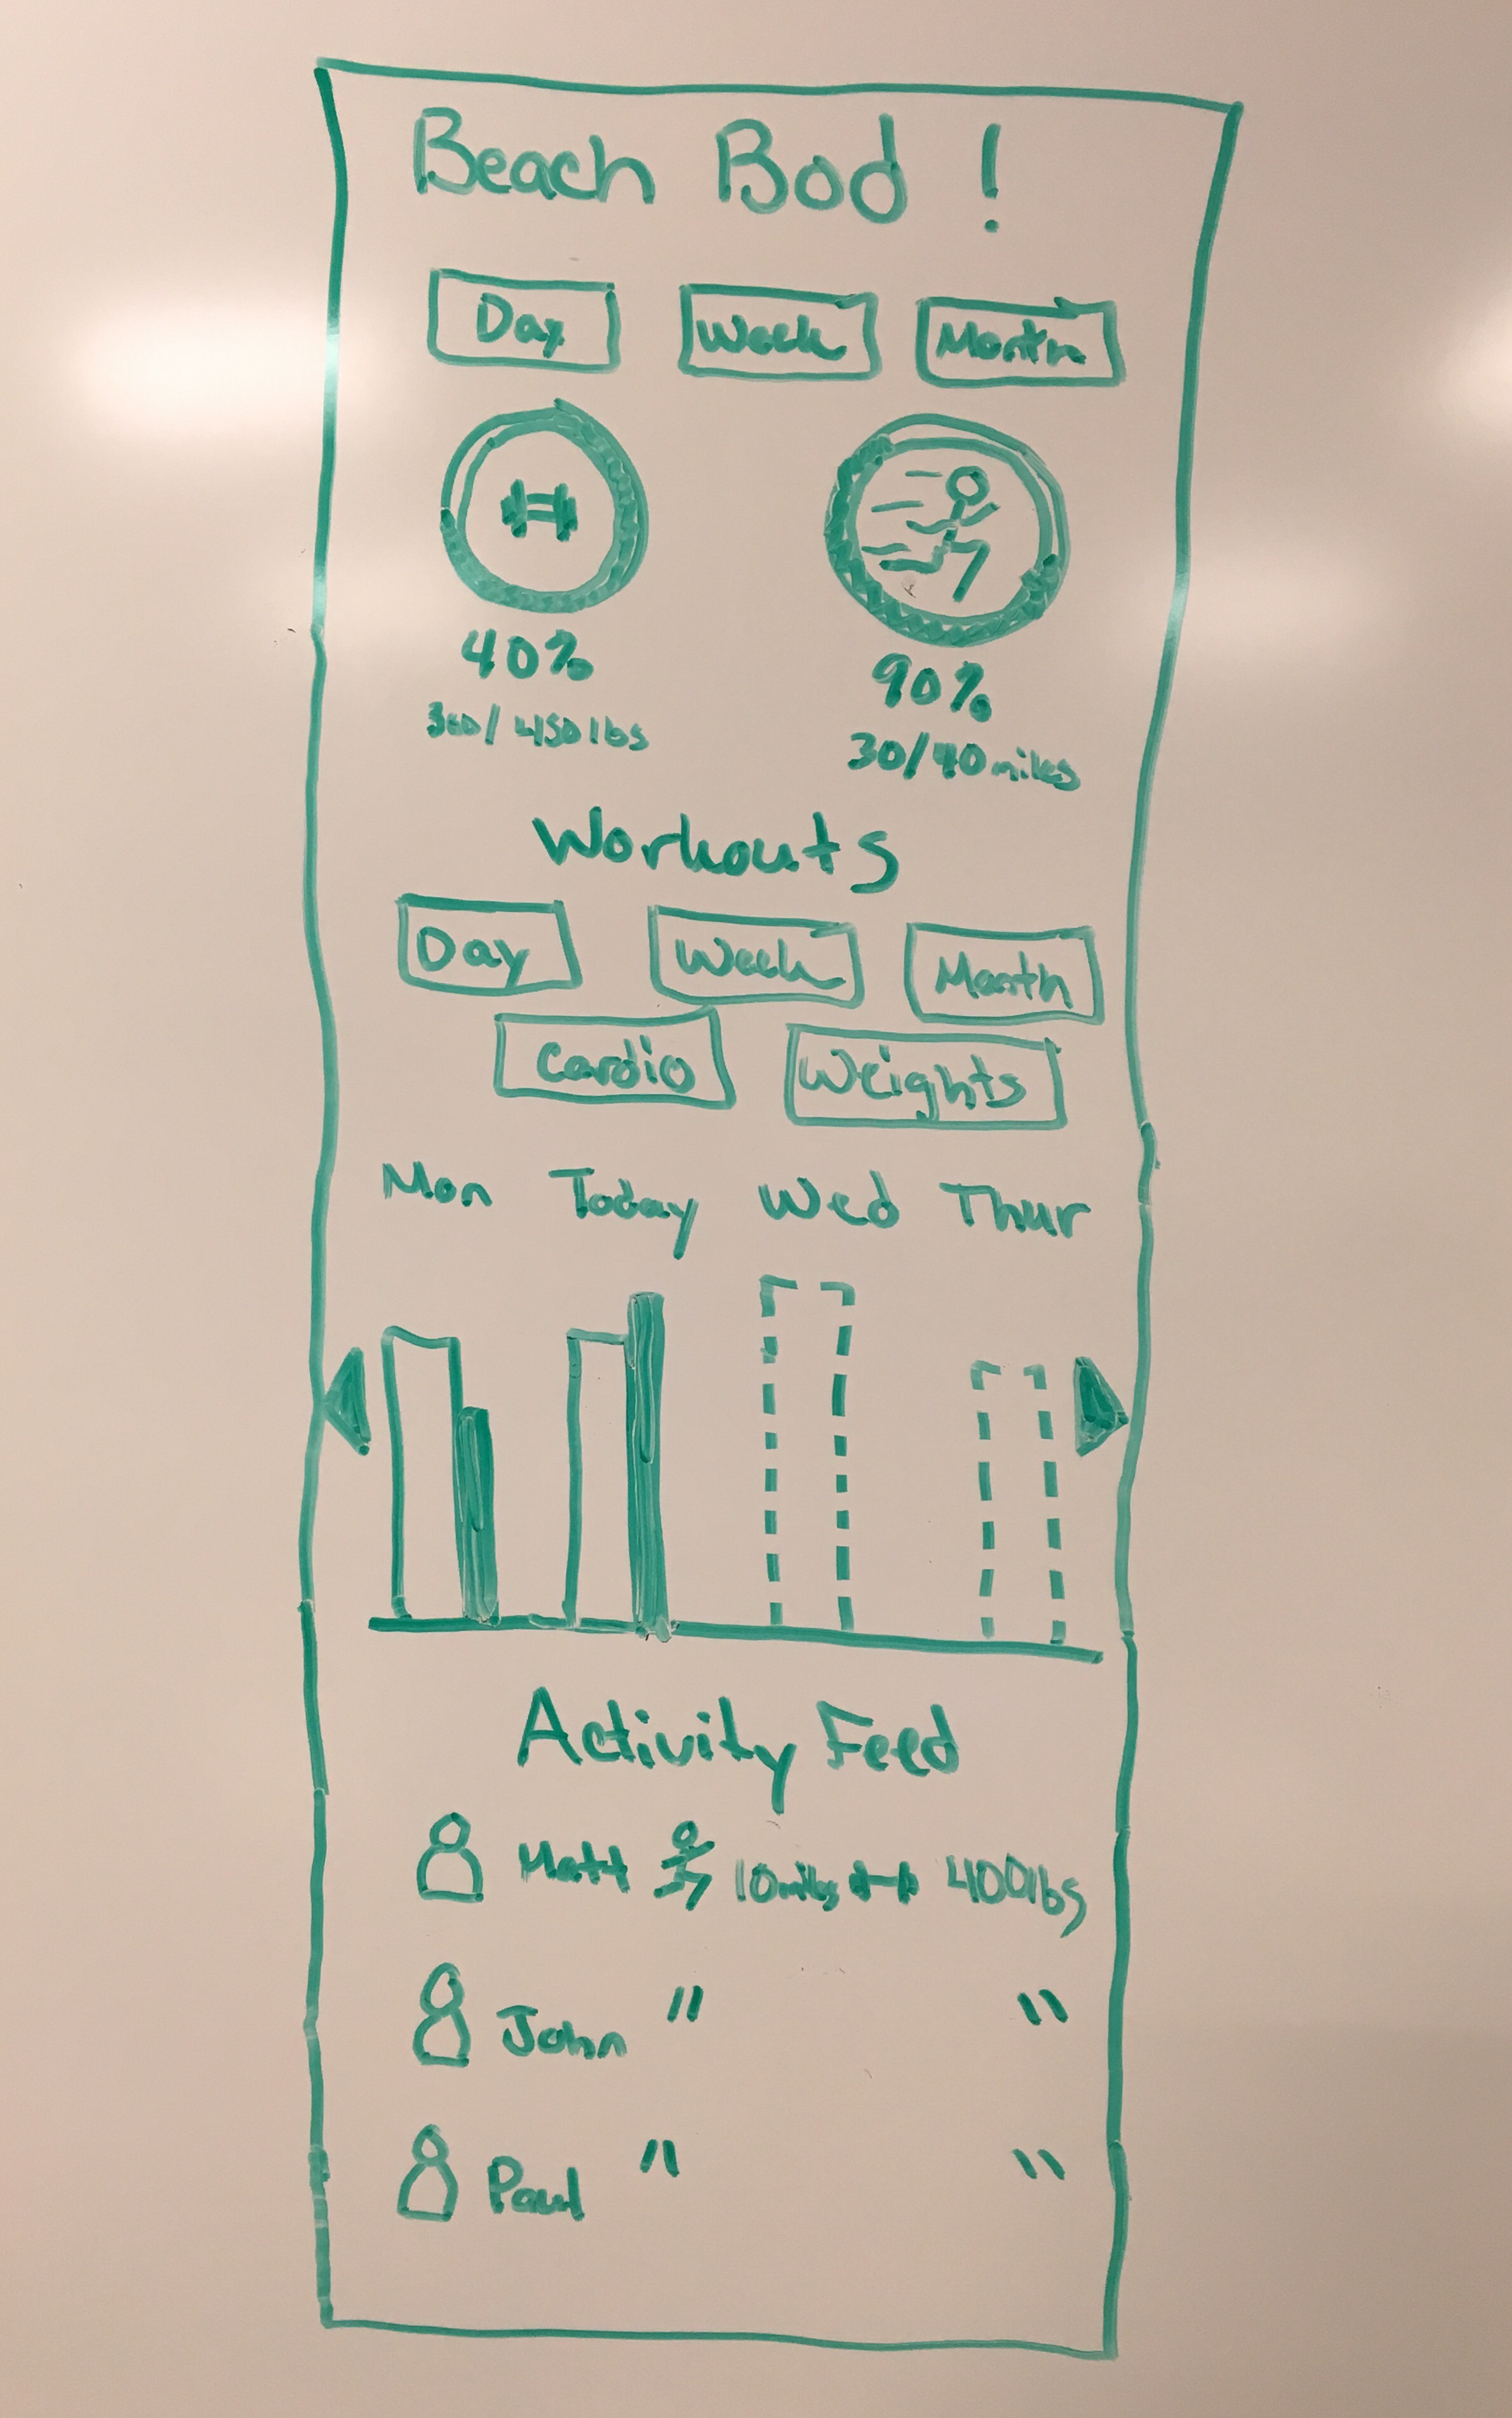 Beach Bod !
Day Week Month
40% 90%
300/450lbs 30/40miles
Workouts
Day Week Month
Cardio Weights
Mon Today Wed Thur
Activity Feed
Matt 10miles 400lbs
John " "
Paul " "